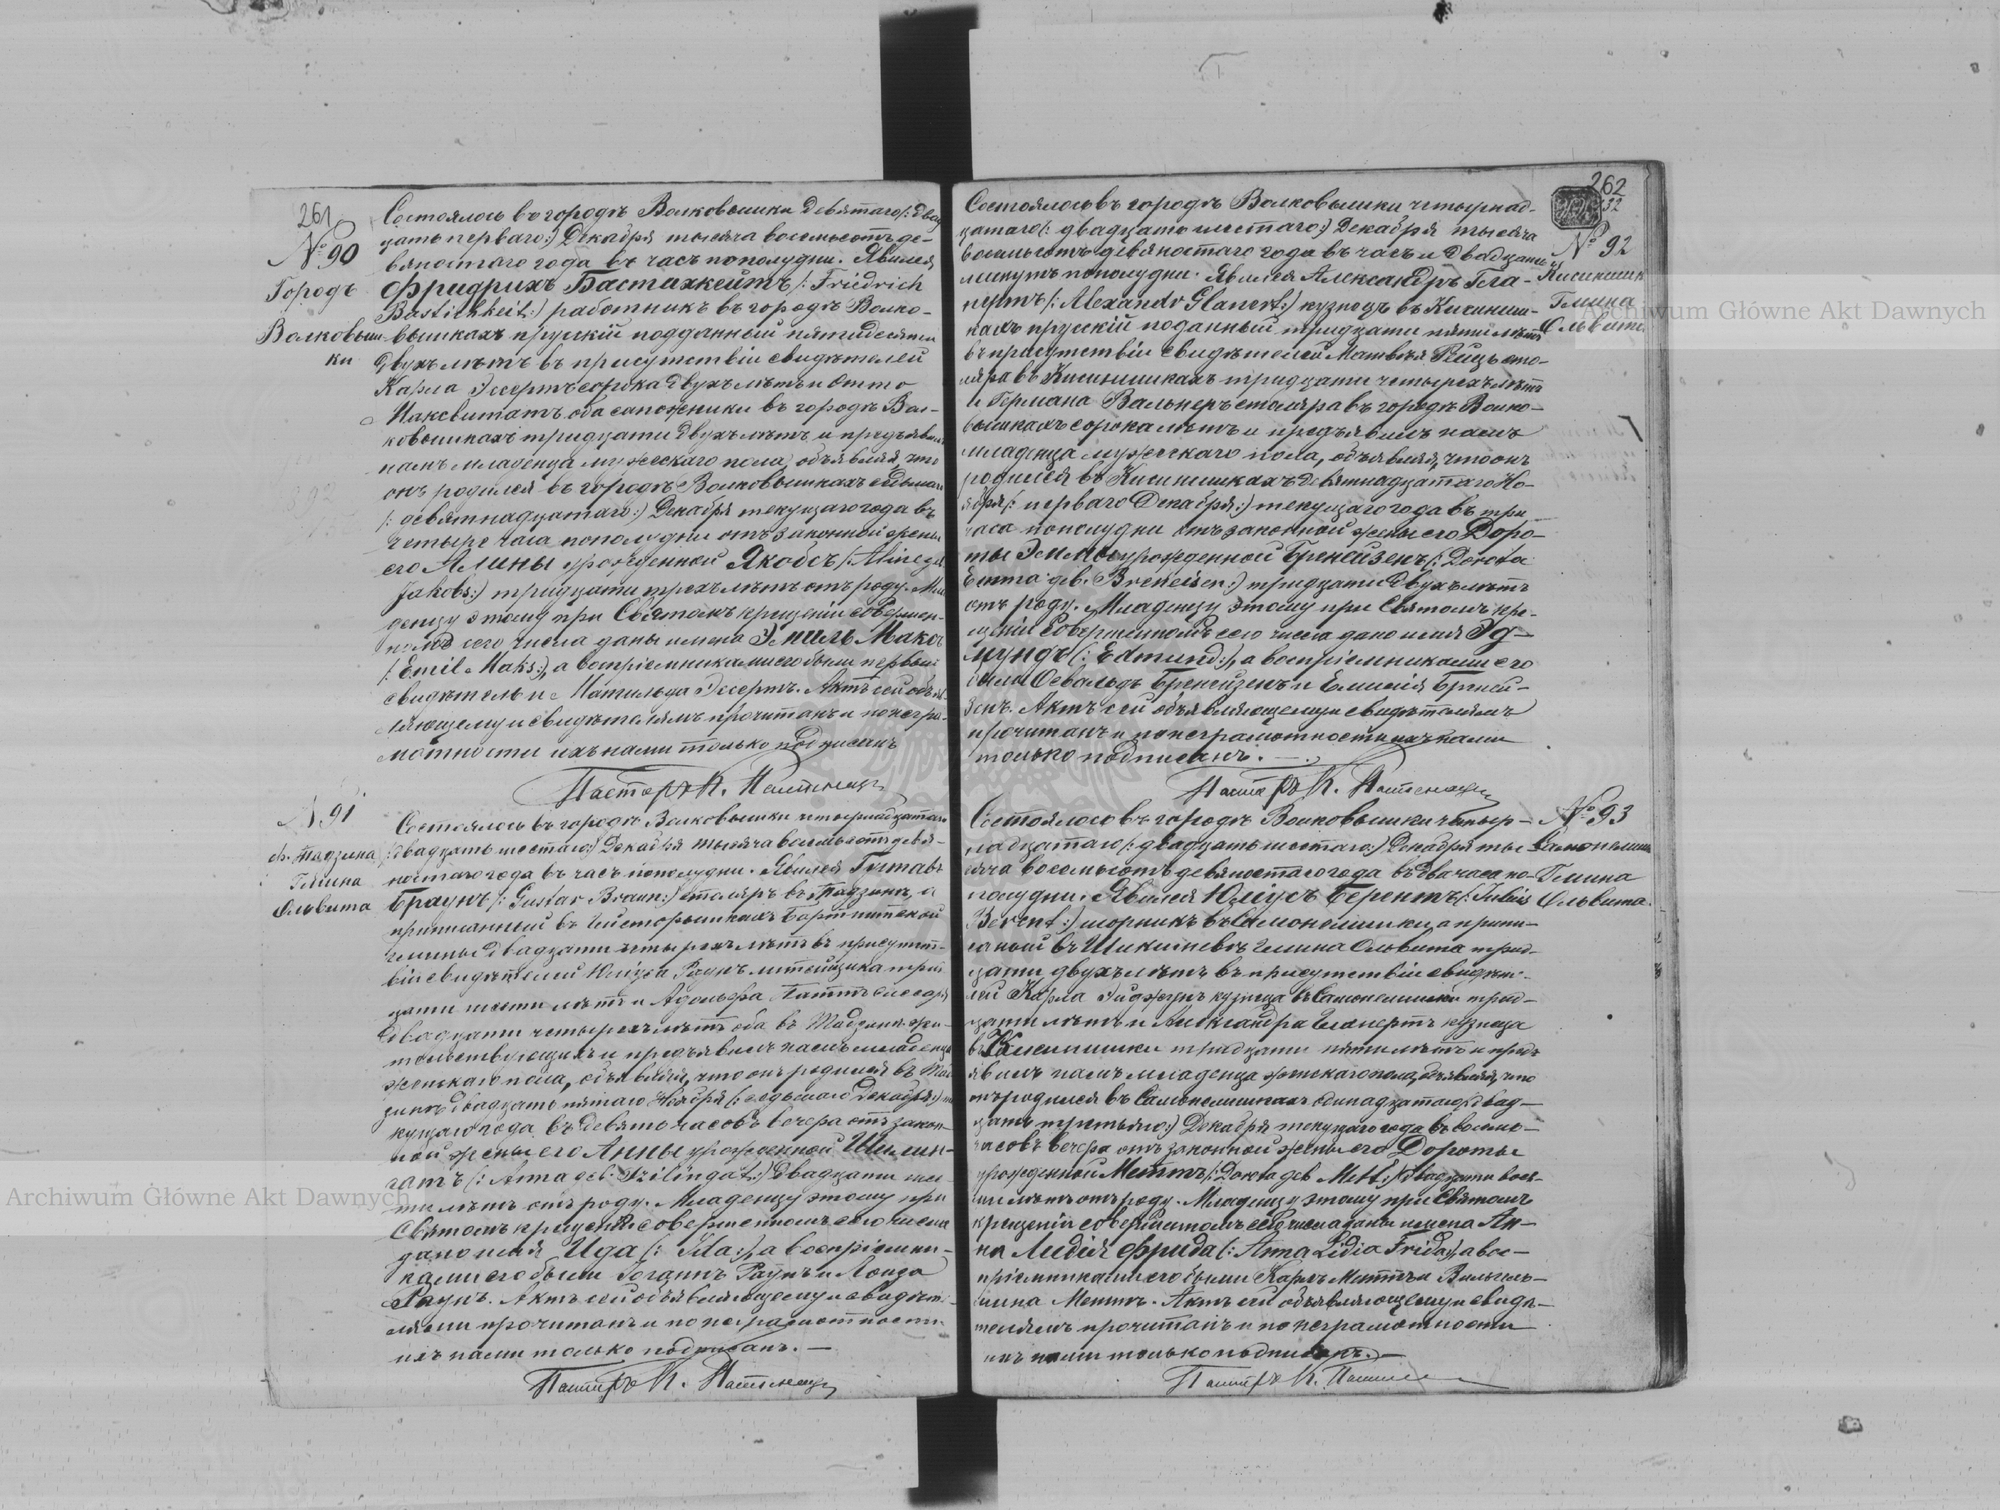 261
№ 90
Городъ
Волковыш-
ки
Состоялось въ городѣ Волковышки девятаго /: двад
цать перваго :/ Декабря тысяча восемьсотъ де-
вяностаго года въ часъ пополудни. Явился
Фридрихъ Бастихкейтъ /: Friedrich
Bastichkeit :/ работникъ въ городѣ Волко-
вышкахъ прускій подданный пятидесяти
двухъ лѣтъ въ присутствіи свидѣтелей
Карла Эссертъ сорока двухъ лѣтъ и Отто
оба сапожники въ городѣ Вол-
ковышкахъ тридцати двухъ лѣтъ и предъявилъ
намъ младенца мужескаго пола, объявляя, что
онъ родился въ городѣ Волковышкахъ седьмаго
/: девятнадцатаго :/ Декабря текущаго года въ
четыре часа пополудни отъ законной жены
его Алины урожденной Якобсъ /: Aline geb
Jakobs :/ тридцати трехъ лѣтъ отъ роду. Мла
денцу этому при Святомъ крещеніи совершен-
номъ сего числа даны имена Эмиль Максъ
/: Emil Maks :/, а воспріемниками его были первый
свидѣтель и Матильда Эссертъ. Актъ сей объяв
ляющему и свидѣтелямъ прочитанъ и по негра-
мотности ихъ нами только подписанъ
Пасторъ К.
№ 91
ф. Тадзина
Гмина
Ольвита
Состоялось въ городѣ Волковышки четырнадцатаго
/: двадцать шестаго :/ Декабря тысяча восемьсотъ девя-
ностаго года въ часъ пополудни. Явился Густавъ
Браунъ /: Gustav Braun :/ столяръ въ Тадзинѣ, а
приписанный въ Бартнитской
гмины двадцати четырехъ лѣтъ въ присутст-
віи свидѣтелей Юліуса Раунъ литейщика трид
цати шести лѣтъ и Адольфа слесаря
двадцати четырехъ лѣтъ оба въ Тадзинѣ жи-
тельствующихъ и предъявилъ намъ младенца
женскаго пола, объявляя, что онъ родился въ Тад
зинѣ двадцать пятаго Ноября /: седьмаго Декабря :/ те
кущаго года въ девять часовъ вечера отъ закон-
ной жены его Анны урожденной Шилин-
гатъ /: Anna geb. Szilingat :/ двадцати ше-
сти лѣтъ отъ роду. Младенцу этому при
Святомъ крещеніи совершенномъ сего числа
дано имя Ида /: Ida :/, а воспріемни-
ками его были Іоганнъ Раунъ и Луиза
Раунъ. Актъ сей объявляющему и свидѣте-
лями прочитанъ и по неграмотности
ихъ нами только подписанъ. —
Пасторъ К.
262
№ 92
Кисинишк
Гмина
Ольвита
Состоялось въ городѣ Волковышки четырнад-
цатаго /: двадцать шестаго :/ Декабря тысяча
восемьсотъ девяностаго года въ часъ и двадцать
минутъ пополудни. Явился Александръ Гла-
нертъ /: Alexandr Glanert :/ кузнецъ въ Кисиниш-
кахъ прускій поданный тридцати пяти лѣтъ
въ присутствіи свидѣтелей Матвѣя Рейцъ сто-
ляра въ Кисинишкахъ тридцати четырехъ лѣтъ
и Германа Вальнеръ столяра въ городѣ Волко-
вышкахъ сорока лѣтъ и предъявилъ намъ
младенца мужескаго пола, объявляя, что онъ
родился въ Кисинишкахъ девятнадцатаго Но-
ября /: перваго Декабря :/ текущаго года въ три
часа пополудни отъ законной жены его Доро-
ты Эммы урожденной Бренейзенъ /: Dorota
Emma geb. Breneisen :/ тридцати двухъ лѣтъ
отъ роду. Младенцу этому при Святомъ кре-
щеніи совершенномъ сего числа дано имя Эд-
мундъ /: Edmund :/, а воспріемниками его
были Освальдъ Бренейзенъ и Емилія Бреней-
зенъ. Актъ сей объявляющему и свидѣтелямъ
прочитанъ и по неграмотности ихъ нами
только подписанъ. —
Пасторъ К.
№ 93
Самонелишки
Гмина
Ольвита
Состоялось въ городѣ Волковышки четыр-
надцатаго /: двадцать шестаго :/ Декабря ты-
сяча восемьсотъ девяностаго года въ два часа по-
полудни. Явился Юліусъ Берентъ /: Julius
Berent :/ шорникъ въ Самонелишки, а припи-
саный въ гмина Ольвита трид-
цати двухъ лѣтъ въ присутствіи свидѣте-
лей Карла кузнеца въ Самонелишки трид-
цати лѣтъ и Александра Гланертъ кузнеца
въ Кисинишки тридцати пяти лѣтъ и предъ
явилъ намъ младенца женскаго пола, объявляя, что
онъ родился въ Самонелишкахъ одинадцатаго /: двад-
цать третьяго :/ Декабря текущаго года въ восемь
часовъ вечера отъ законной жены его Дороты
урожденной Меттъ /: Dorota geb Mett :/ двадцати вось-
ми лѣтъ отъ роду. Младенцу этому при Святомъ
крещеніи совершенномъ сего числа даны имена Ан-
на Лидія Фрида /: Anna Lidia Frida :/, а вос-
пріемниками его были Карлъ Меттъ и Вильгель-
мина Меттъ. Актъ сей объявляющему и свидѣ-
телямъ прочитанъ и по неграмотности
ихъ нами только подписанъ. —
Пасторъ К.
Archiwum Główne Akt Dawnych
Archiwum Główne Akt Dawnych